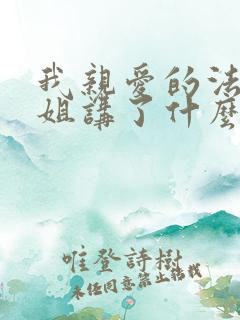 我親愛的法
姐講了什麼
唯登詩樹
未经同意禁止转载